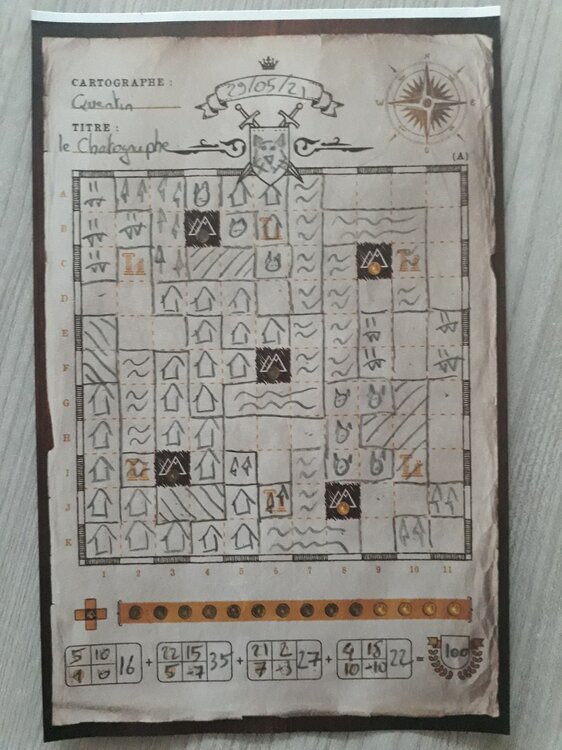 CARTOGRAPHE :
Quentin
29/05/21
N
W E
S
TITRE :
le Chatographe
(A)
A
B
C
D
E
F
G
H
I
J
K
1 2 3 4 5 6 7 8 9 10 11
5 10 22 15 21 2 4 18
16 + 35 + 27 + 22 = 100
5 -7 7 -3 10 -10